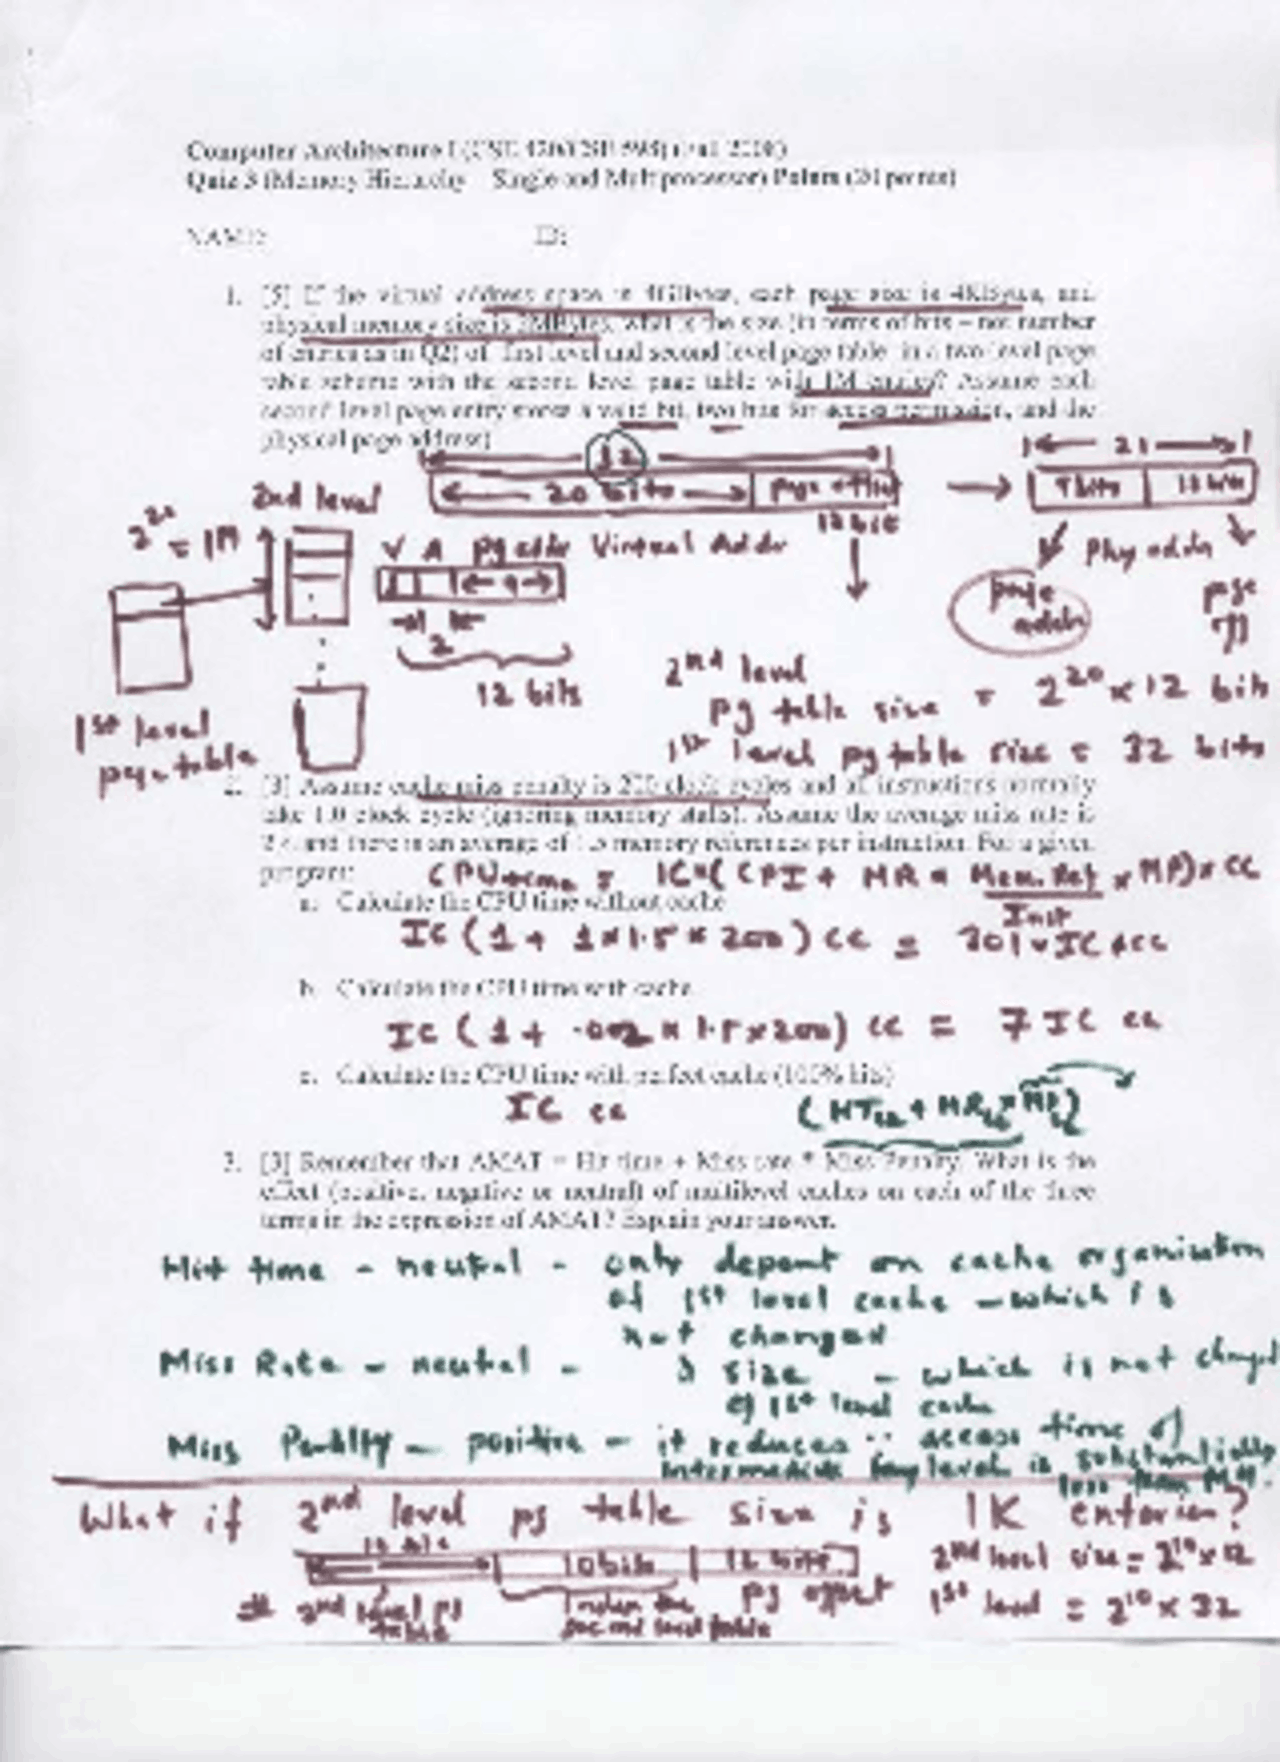 Computer Architecture I (CSE 420/CSE 598) (Fall 2008)
Quiz 3 (Memory Hierarchy Single and Multiprocessor) Points (20 points)
NAME: ID:
1. [5] If the virtual address space is 4GBytes, each page size is 4KBytes, and
physical memory size is 2MBytes, what is the size (in terms of bits – not number
of entries as in Q2) of first level and second level page table in a two level page
table scheme with the second level page table with 1M entries? Assume each
second level page entry stores a valid bit, two bits for access permission, and the
physical page address)
32
21
20 bits page offset
9 bits 12 bits
12 bit
2nd level
2^20 = 1M
V A pg addr Virtual Addr
Phy addr
9
page addr
page off
2
12 bits
2nd level
pg table size = 2^20 × 12 bits
1st level pg table size = 32 bits
1st level
page table
2. [3] Assume cache miss penalty is 200 clock cycles and all instructions normally
take 1.0 clock cycle (ignoring memory stalls). Assume the average miss rate is
and there is an average of 1.5 memory references per instruction. For a given
program:
CPU time = IC × (CPI + MR × Mem. Ref / Inst × MP) × CC
a. Calculate the CPU time without cache
IC (1 + 1 × 1.5 × 200) CC = 301 × IC × CC
b. Calculate the CPU time with cache
IC (1 + .002 × 1.5 × 200) CC = 7 IC CC
c. Calculate the CPU time with perfect cache (100% hits)
IC CC
(HT L2 + MR L2 × MP L2)
3. [3] Remember that AMAT = Hit time + Miss rate * Miss Penalty. What is the
effect (positive, negative or neutral) of multilevel caches on each of the three
terms in the expression of AMAT? Explain your answer.
Hit time - neutral - only depent on cache organization
of 1st level cache - which is
not changed
Miss Rate - neutral - size - which is not changed
of 1st level cache
Miss Penalty - positive - it reduces access time of
intermediate level is substantially
less than MM.
What if 2nd level pg table size is 1K enteries?
10 bits
10 bits 12 bits
2nd level size = 2^10 × 12
# 2nd level pg table
Index the second level table
pg offset
1st level = 2^10 × 32